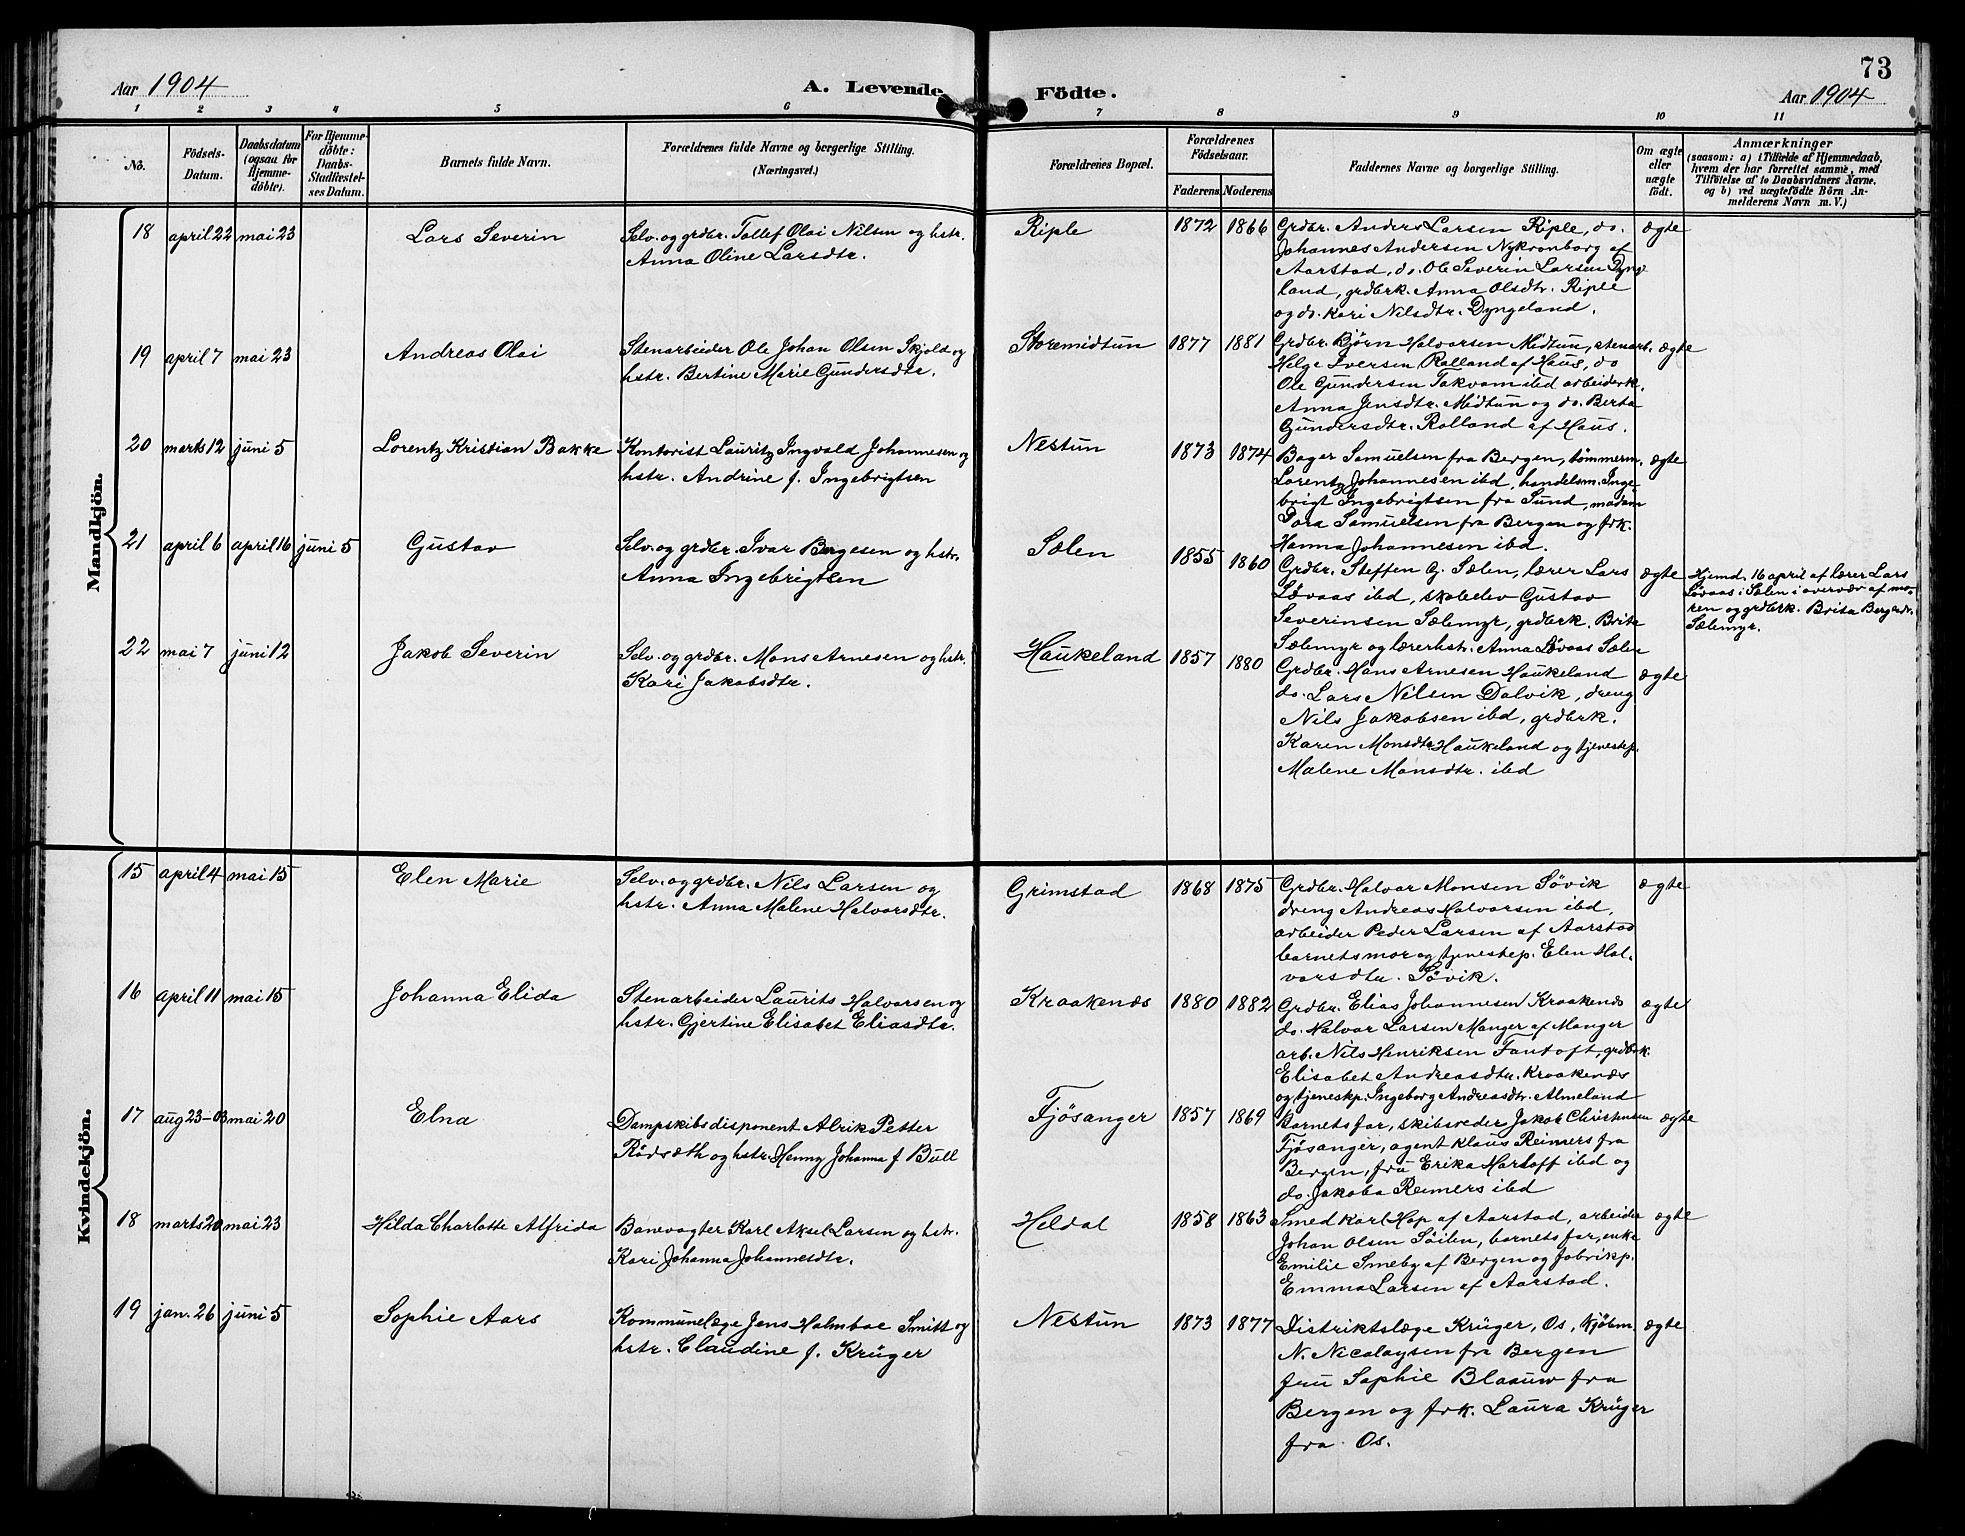 73
Aar 1904
A. Levende Födte.
Aar 1904
1 2 3 4 5 6 7 8 9 10 11
No.
Födsels-Datum.
Daabsdatum (ogsaa for Hjemme-döbte).
For Hjemme-döbte: Daabs-Stadfæstel-ses Datum.
Barnets fulde Navn.
Forældrenes fulde Navne og borgerlige Stilling.
(Næringsvei.)
Forældrenes Bopæl.
Forældrenes Födselsaar.
Faderens Moderens
Faddernes Navne og borgerlige Stilling.
Om ægte eller uægte födt.
Anmærkninger
(saasom: a) i Tilfælde af Hjemmedaab,
hvem der har forrettet samme, med
Tilföielse af to Daabsvidners Navne,
og b) ved uægtefödte Börn An-
melderens Navn m. V.)
Mandkjön.
18 april 22 mai 23 Lars Severin
Selv. og grdbr. Tollef Olai Nilsen og hstr.
Anna Oline Larsdtr.
Riple 1872 1866
Grdbr. Anders Larsen Riple, do.
Johannes Andersen Nykronborg af
Aarstad, do. Ole Severin Larsen Dynge
land, grdbrk. Anna Olsdtr. Riple
og do. Kari Nilsdtr. Dyngeland.
ægte
19 april 7 mai 23 Andreas Olai
Stenarbeider Ole Johan Olsen Skjold og
hstr. Bertine Marie Gundersdtr.
Storemidtun 1877 1881
Grdbr. Bjørn Halvorsen Midtun, stenarb.
Helge Iversen Rolland af Haus, do
Ole Gundersen Takvam ibd arbeiderk.
Anna Jensdtr. Midtun og do. Berta
Gundersdtr. Rolland af Haus.
ægte
20 marts 12 juni 5 Lorentz Kristian Bakke
Kontorist Lauritz Ingvald Johannesen og
hstr. Andrine f. Ingebrigtsen
Nestun 1873 1874
Bager Samuelsen fra Bergen, tømmerm.
Lorentz Johannesen ibd, handelsm. Inge-
brigt Ingebrigtsen fra Sund, madam
Dora Samuelsen fra Bergen og frk.
Hanna Johannesen ibd.
ægte
21 april 6 april 16 juni 5 Gustav
Selv. og grdbr. Ivar Børgesen og hstr.
Anna Ingebrigtsen
Sælen 1855 1860
Grdbr. Steffen G. Sælen, lærer Lars
Løvaas ibd, skoleelev Gustav
Severinsen Sælemyr, grdbrk. Brite
Sælemyr og lærerhstr. Anna Løvaas Sælen
ægte
Hjemd. 16 april af lærer Lars
Løvaas i Sælen i overvær af mo-
ren og grdbrk. Brita
Sælemyr.
22 mai 7 juni 12 Jakob Severin
Selv. og grdbr. Mons Arnesen og hstr.
Kari Jakobsdtr.
Haukeland 1857 1880
Grdbr. Hans Arnesen Haukeland
do. Lars Nilsen Dalvik, dreng
Nils Jakobsen ibd, grdbrk.
Karen Monsdtr. Haukeland og tjenestep.
Malene Monsdtr. ibd
ægte
Kvindekjön.
15 april 4 mai 15 Elen Marie
Selv. og grdbr. Nils Larsen og
hstr. Anna Malene Halvorsdtr.
Grimstad 1868 1875
Grdbr. Halvar Monsen Søvik
dreng Andreas Halvorsen ibd,
arbeider Peder Larsen af Aarstad
barnets mor og tjenestep. Elen Hal-
vorsdtr. Søvik.
ægte
16 april 11 mai 15 Johanna Elida
Stenarbeider Laurits Halvorsen og
hstr. Gjertine Elisabet Eliasdtr.
Kraakenæs 1880 1882
Grdbr. Elias Johannesen Kraakenæs
do. Halvor Larsen Manger af Manger
arb. Nils Henriksen Fantoft, grdbrk.
Elisabet Andreasdtr. Kraakenæs
og tjeneskp. Ingeborg Andreasdtr. Almeland
ægte
17 aug 23-03 mai 20 Elna
Dampskibsdisponent Alrik Petter
Rødsæth og hstr. Henny Johanna f. Bull
Fjøsanger 1857 1869
Barnets far, skibsreder Jakob Christensen
Fjøsanger, agent Klaus Reimers fra
Bergen, fru Erika Martoff ibd og
do. Jakoba Reimers ibd
ægte
18 marts 20 mai 23 Hilda Charlotte Alfrida
Banevogter Karl Aksel Larsen og hstr.
Kari Johanna Johannesdtr.
Heldal 1858 1863
Smed Karl Hop af Aarstad, arbeider
Johan Olsen Søilen, barnets far, enke
Emilie Smeby af Bergen og fabrikp.
Emma Larsen af Aarstad.
ægte
19 jan. 26 juni 5 Sophie Aars
Kommunelæge Jens Holmboe Smitt og
hstr. Claudine f. Krüger
Nestun 1873 1877
Distriktslæge Krüger, Os, kjøbm.
N. Nicolaysen fra Bergen
fru Sophie Blaauw fra
Bergen og frk. Laura Krüger
fra Os.
ægte